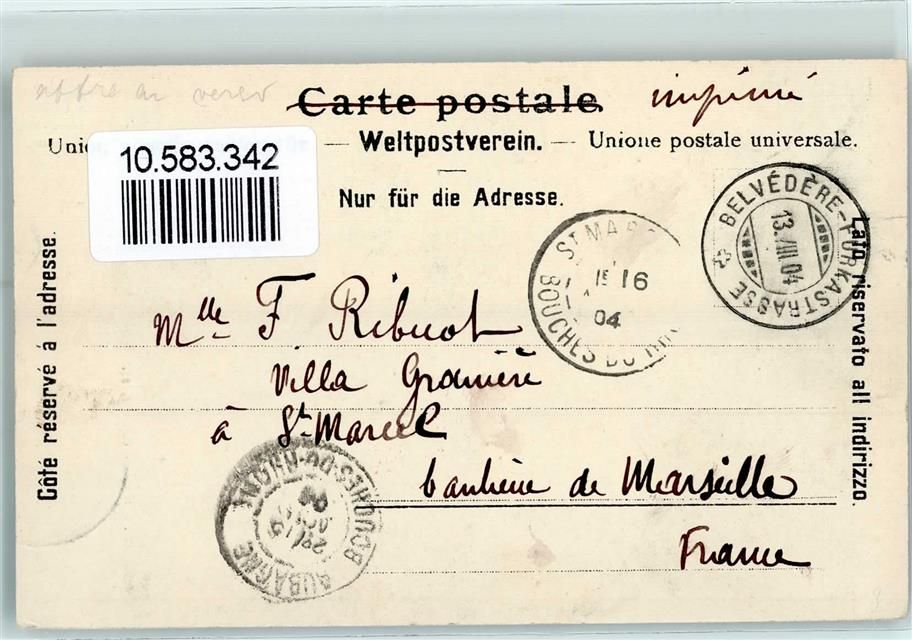 Carte postale. imprimé
10.583.342
Weltpostverein. — Unione postale universale.
Nur für die Adresse.
Côté réservé á l'adresse.
Lato riservato all indirizzo.
BELVÉDÈRE-FURKASTRASSE
13.VIII.04
ST MARC
16
04
BOUCHES DU RH
Mlle F. Ribuot
Villa Granière
à St Marcel
banlieue de Marseille
France
AUBAGNE
BOUCHES-DU-RHONE